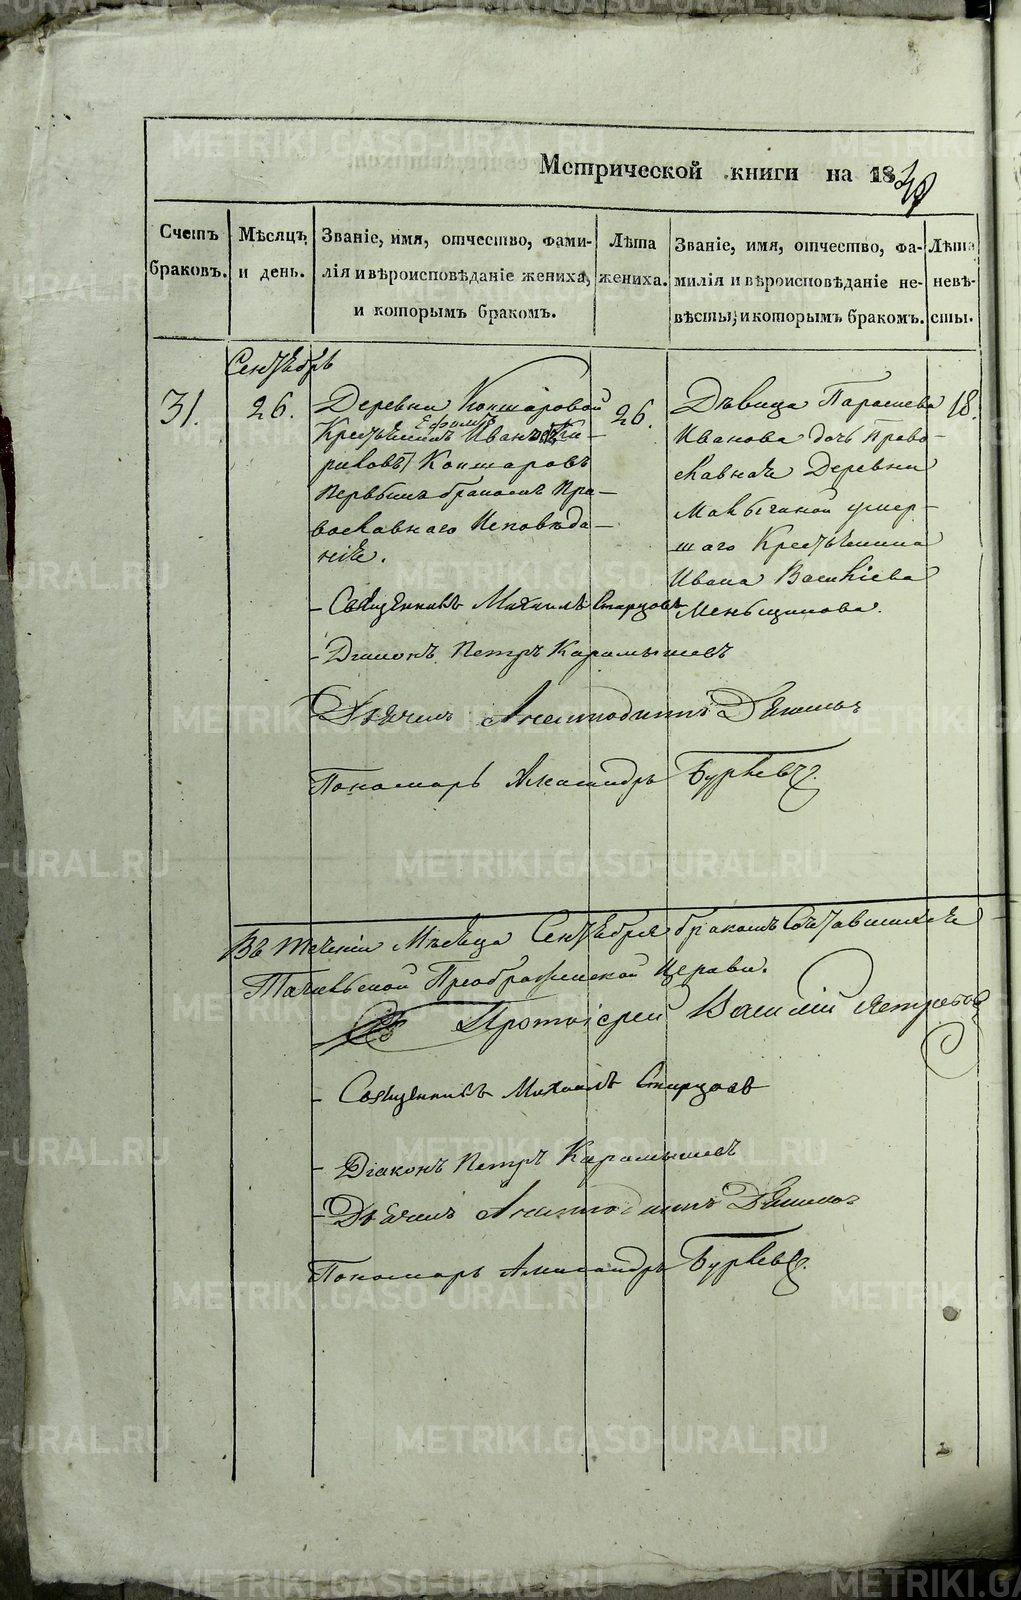 Метрической книги на 1838
Счетъ браковъ.
Мѣсяцъ и день.
Званіе, имя, отчество, фами-
лія и вѣроисповѣданіе жениха,
и которымъ бракомъ.
Лѣта
жениха.
Званіе, имя, отчество, фа-
милія и вѣроисповѣданіе не-
вѣсты, и которымъ бракомъ.
Лѣта
невѣ-
сты.
Сентябрь
31.
26.
Деревни Кокшаровой
Ефимъ
Крестьянинъ Иванъ Ки-
риловъ Кокшаровъ
первымъ бракомъ Пра-
вославнаго Исповѣда-
нія.
26.
Дѣвица Парасковья
Иванова дочь Право-
славная Деревни
умер-
шаго Крестьянина
Ивана Василіева
Меньщикова.
18.
Священникъ Михаилъ Старцовъ
Діаконъ Петръ Карамышевъ
Дьячекъ
Пономарь Александръ
Въ теченіи Мѣсяца Сентября бракомъ Сочетавшихся
Преображенской Церкви.
Протоіерей Василій
Священникъ Михаилъ Старцовъ
Діаконъ Петръ Карамышевъ
Дьячекъ
Пономарь Александръ
METRIKI.GASO-URAL.RU